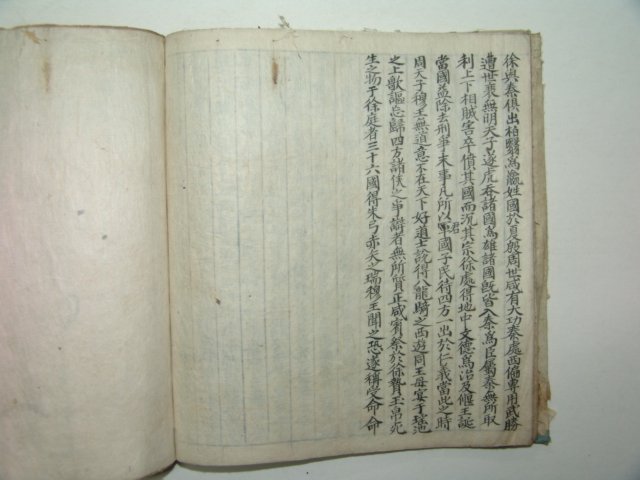 徐與秦俱出栢翳爲嬴姓國於夏殷周世咸有大功秦處西偏專用武勝
遭世衰無明天子遂虎吞諸國爲雄諸國旣皆入秦爲臣屬秦無所取
利上下相賊害卒僨其國而沉其宗徐處得地中文德爲治及偃王誕
當國益除去刑爭末事凡所以君國子民待四方一出於仁義當此之時
周天子穆王無道意不在天下好道士說得八龍騎之西遊同王母宴于瑤池
之上歌謳忘歸四方諸侯之爭辯者無所質正咸賓祭於徐贄玉帛死
生之物于徐庭者三十六國得朱弓赤矢之瑞穆王聞之恐遂稱受命命